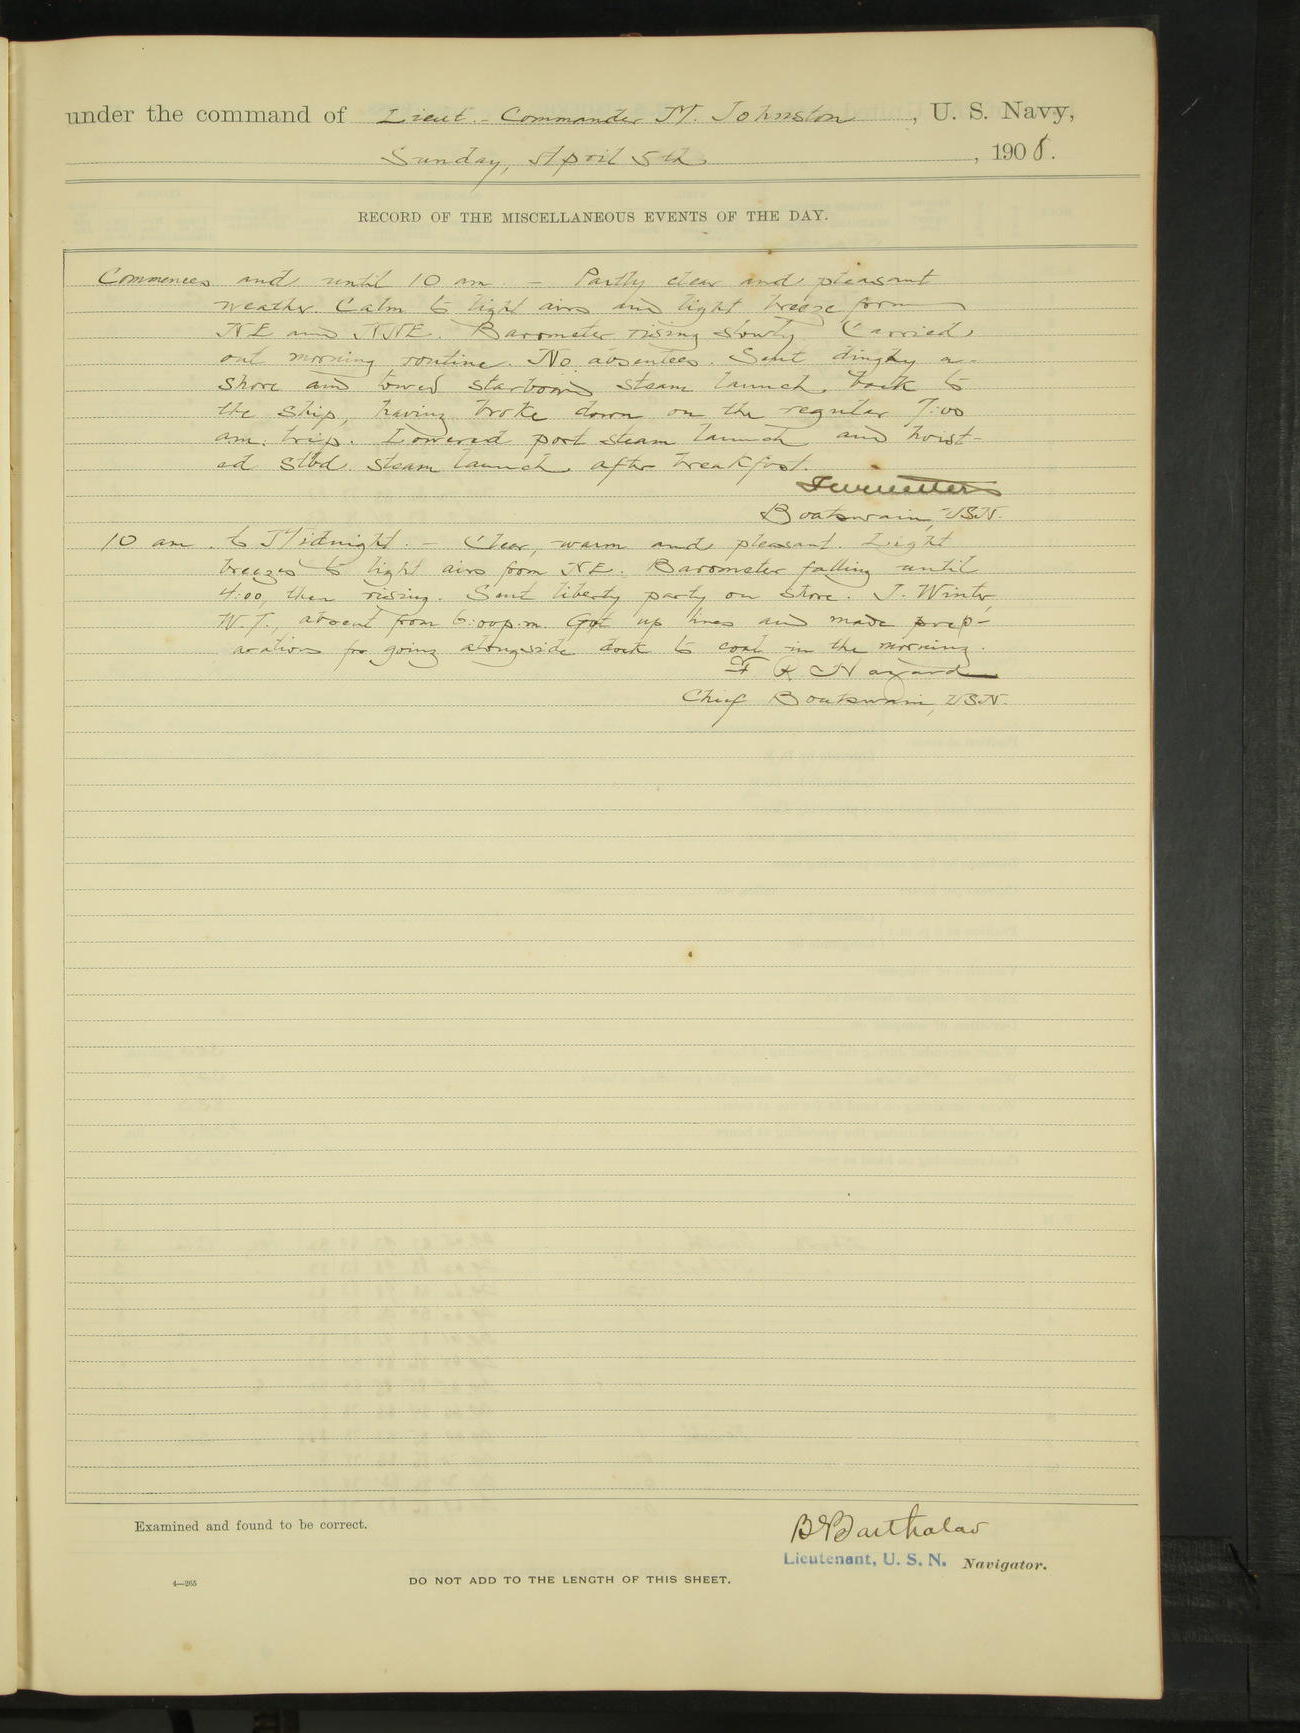 under the command of Lieut.-Commander M. Johnston, U. S. Navy,
Sunday, April 5th, 1908.
RECORD OF THE MISCELLANEOUS EVENTS OF THE DAY.
Commences and until 10 am. - Partly clear and pleasant
weather. Calm to light airs and light breeze form
NE and NNE. Barometer rising slowly. Carried
out morning routine. No absentees. Sent dinghy a-
shore and towed starboard steam launch back to
the ship, having broke down on the regular 7:00
am. trip. Lowered port steam launch and hoist-
ed stbd. steam launch after breakfast.
Boatswain, USN.
10 am. to Midnight. - Clear, warm and pleasant. Light
breezes to light airs from NE. Barometer falling until
4:00, then rising. Sent liberty party on shore. J. Winter,
W.T., absent from 6:00 p.m. Got up lines and made prep-
arations for going alongside dock to coal in the morning.
F R Hazard
Chief Boatswain, USN.
Examined and found to be correct.
Lieutenant, U. S. N. Navigator.
4—265
DO NOT ADD TO THE LENGTH OF THIS SHEET.